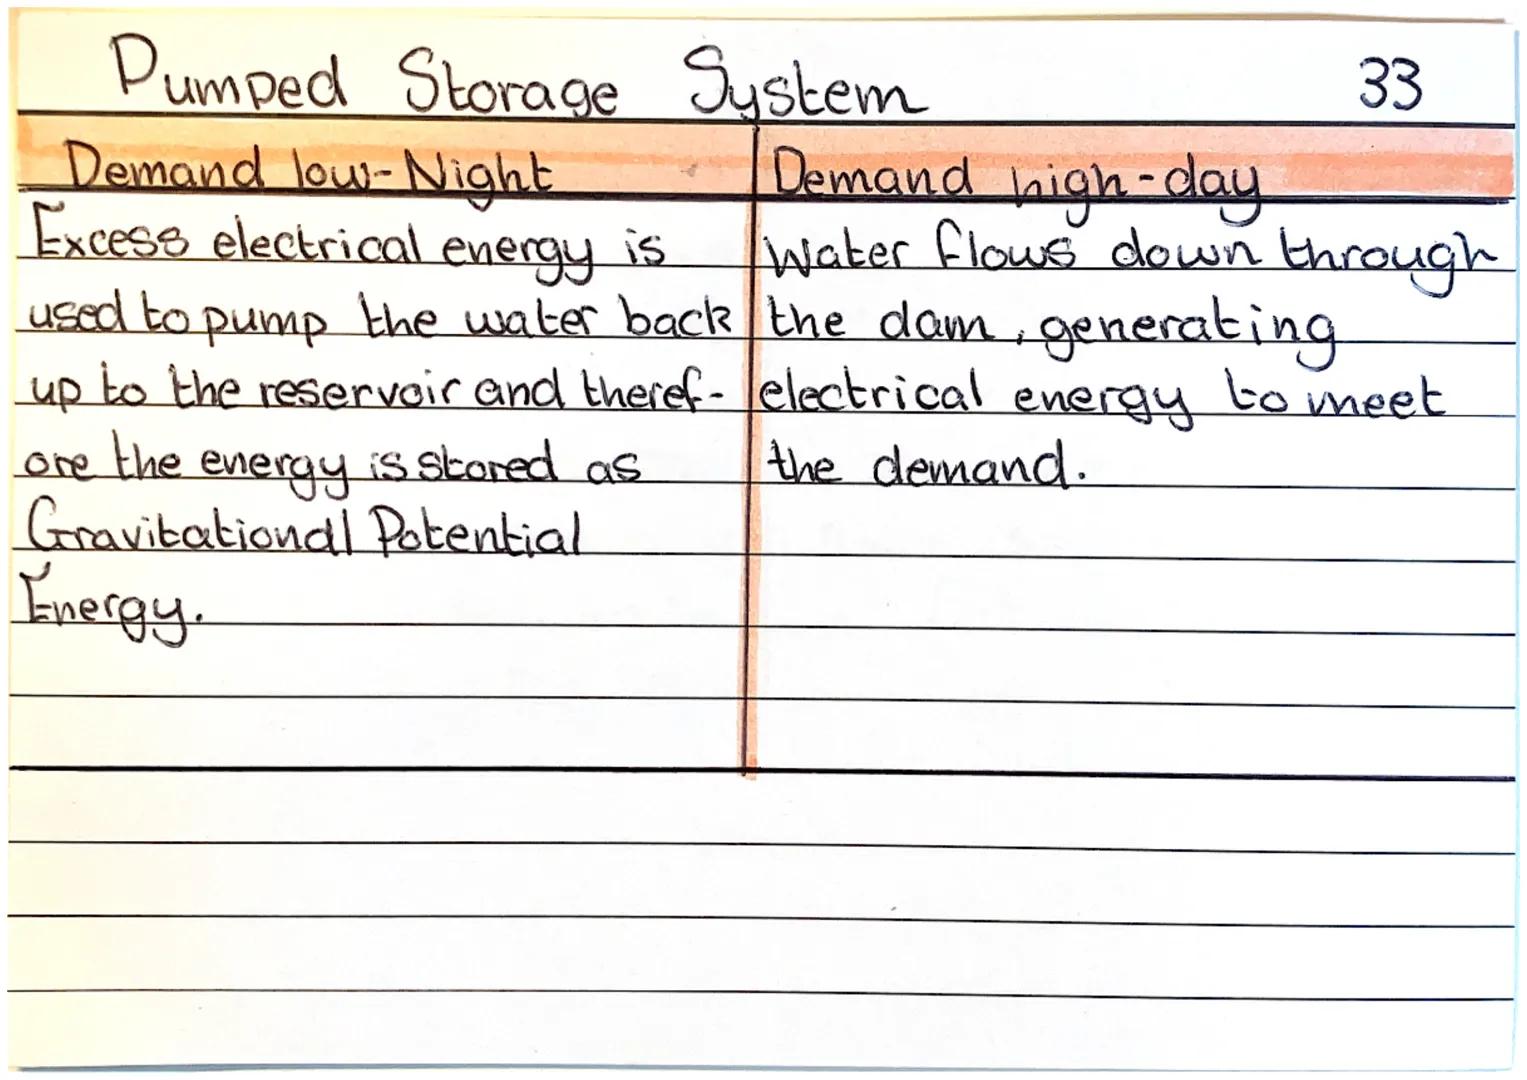 Pumped Storage System 33
Demand low-Night
Excess electrical energy is
used to pump the water back
up to the reservoir and theref-
ore the energy is stored as
Gravitational Potential
Energy.
Demand high-day
Water flows down through
the dam, generating
electrical energy to meet
the demand.